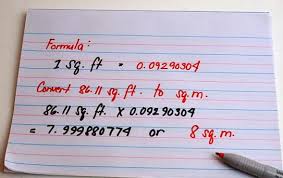 Formula:
1 sq. ft = 0.09290304
Convert 86.11 sq. ft. to sq. m.
86.11 sq. ft. x 0.09290304
= 7.999880774 or 8 sq. m.